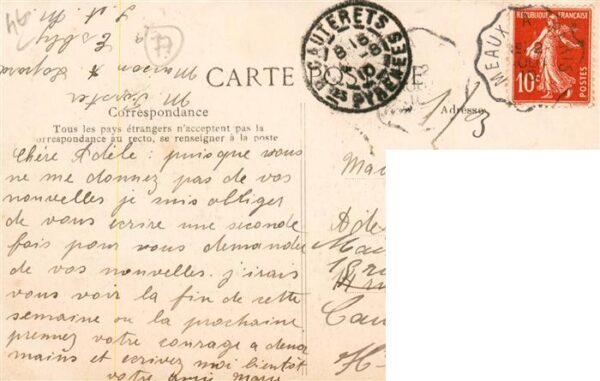 94
77
CAUTERETS
8 15
-8
10
PYRENEES
MEAUX
REPUBLIQUE FRANÇAISE
10c
POSTES
CARTE POSTALE
Correspondance
Adresse
1/3
Tous les pays étrangers n'acceptent pas la
correspondance au recto, se renseigner à la poste
Chère Adèle : puisque vous
ne me donnez pas de vos
nouvelles je suis obliger
de vous écrire une seconde
fois pour vous demander
de vos nouvelles. j'irais
vous voir la fin de cette
semaine ou la prochaine
prennez votre courage a deux
mains et ecrivez moi bientot
votre amie Marie
Mad
Ade
Mai
18 ru
Cau
H-
à Esbly
S et M